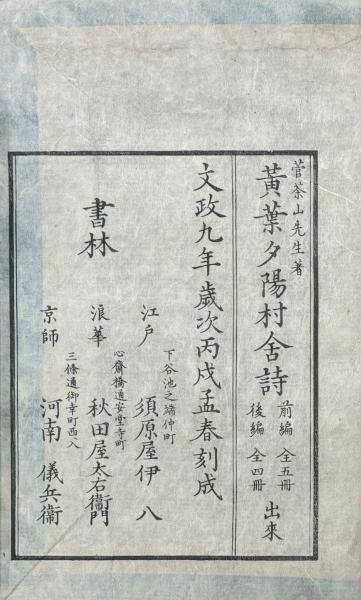 菅茶山先生著
黃葉夕陽村舍詩 前編 全五冊 後編 全四冊 出來
文政九年歲次丙戌孟春刻成
書林
下谷池之端仲町
江戶 須原屋伊八
心齋橋通安堂寺町
浪華 秋田屋太右衞門
三條通御幸町西入
京師 河南儀兵衞